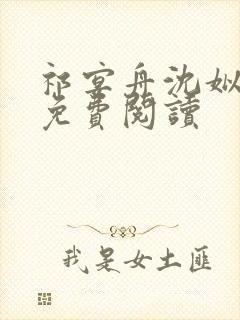 祁宴舟沈姒
免費閱讀
我是女土匪